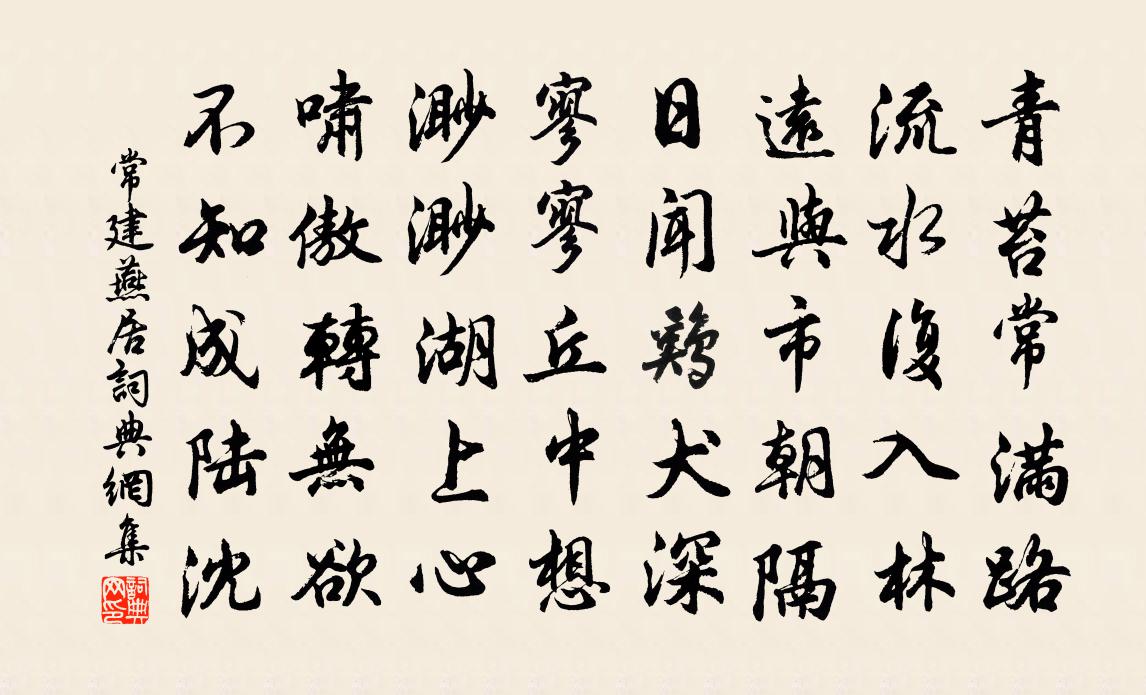 青苔常滿路
流水復入林
遠與市朝隔
日聞鷄犬深
寥寥丘中想
渺渺湖上心
嘯傲轉無欲
不知成陸沈
常建燕居詞典網集
詞典網印